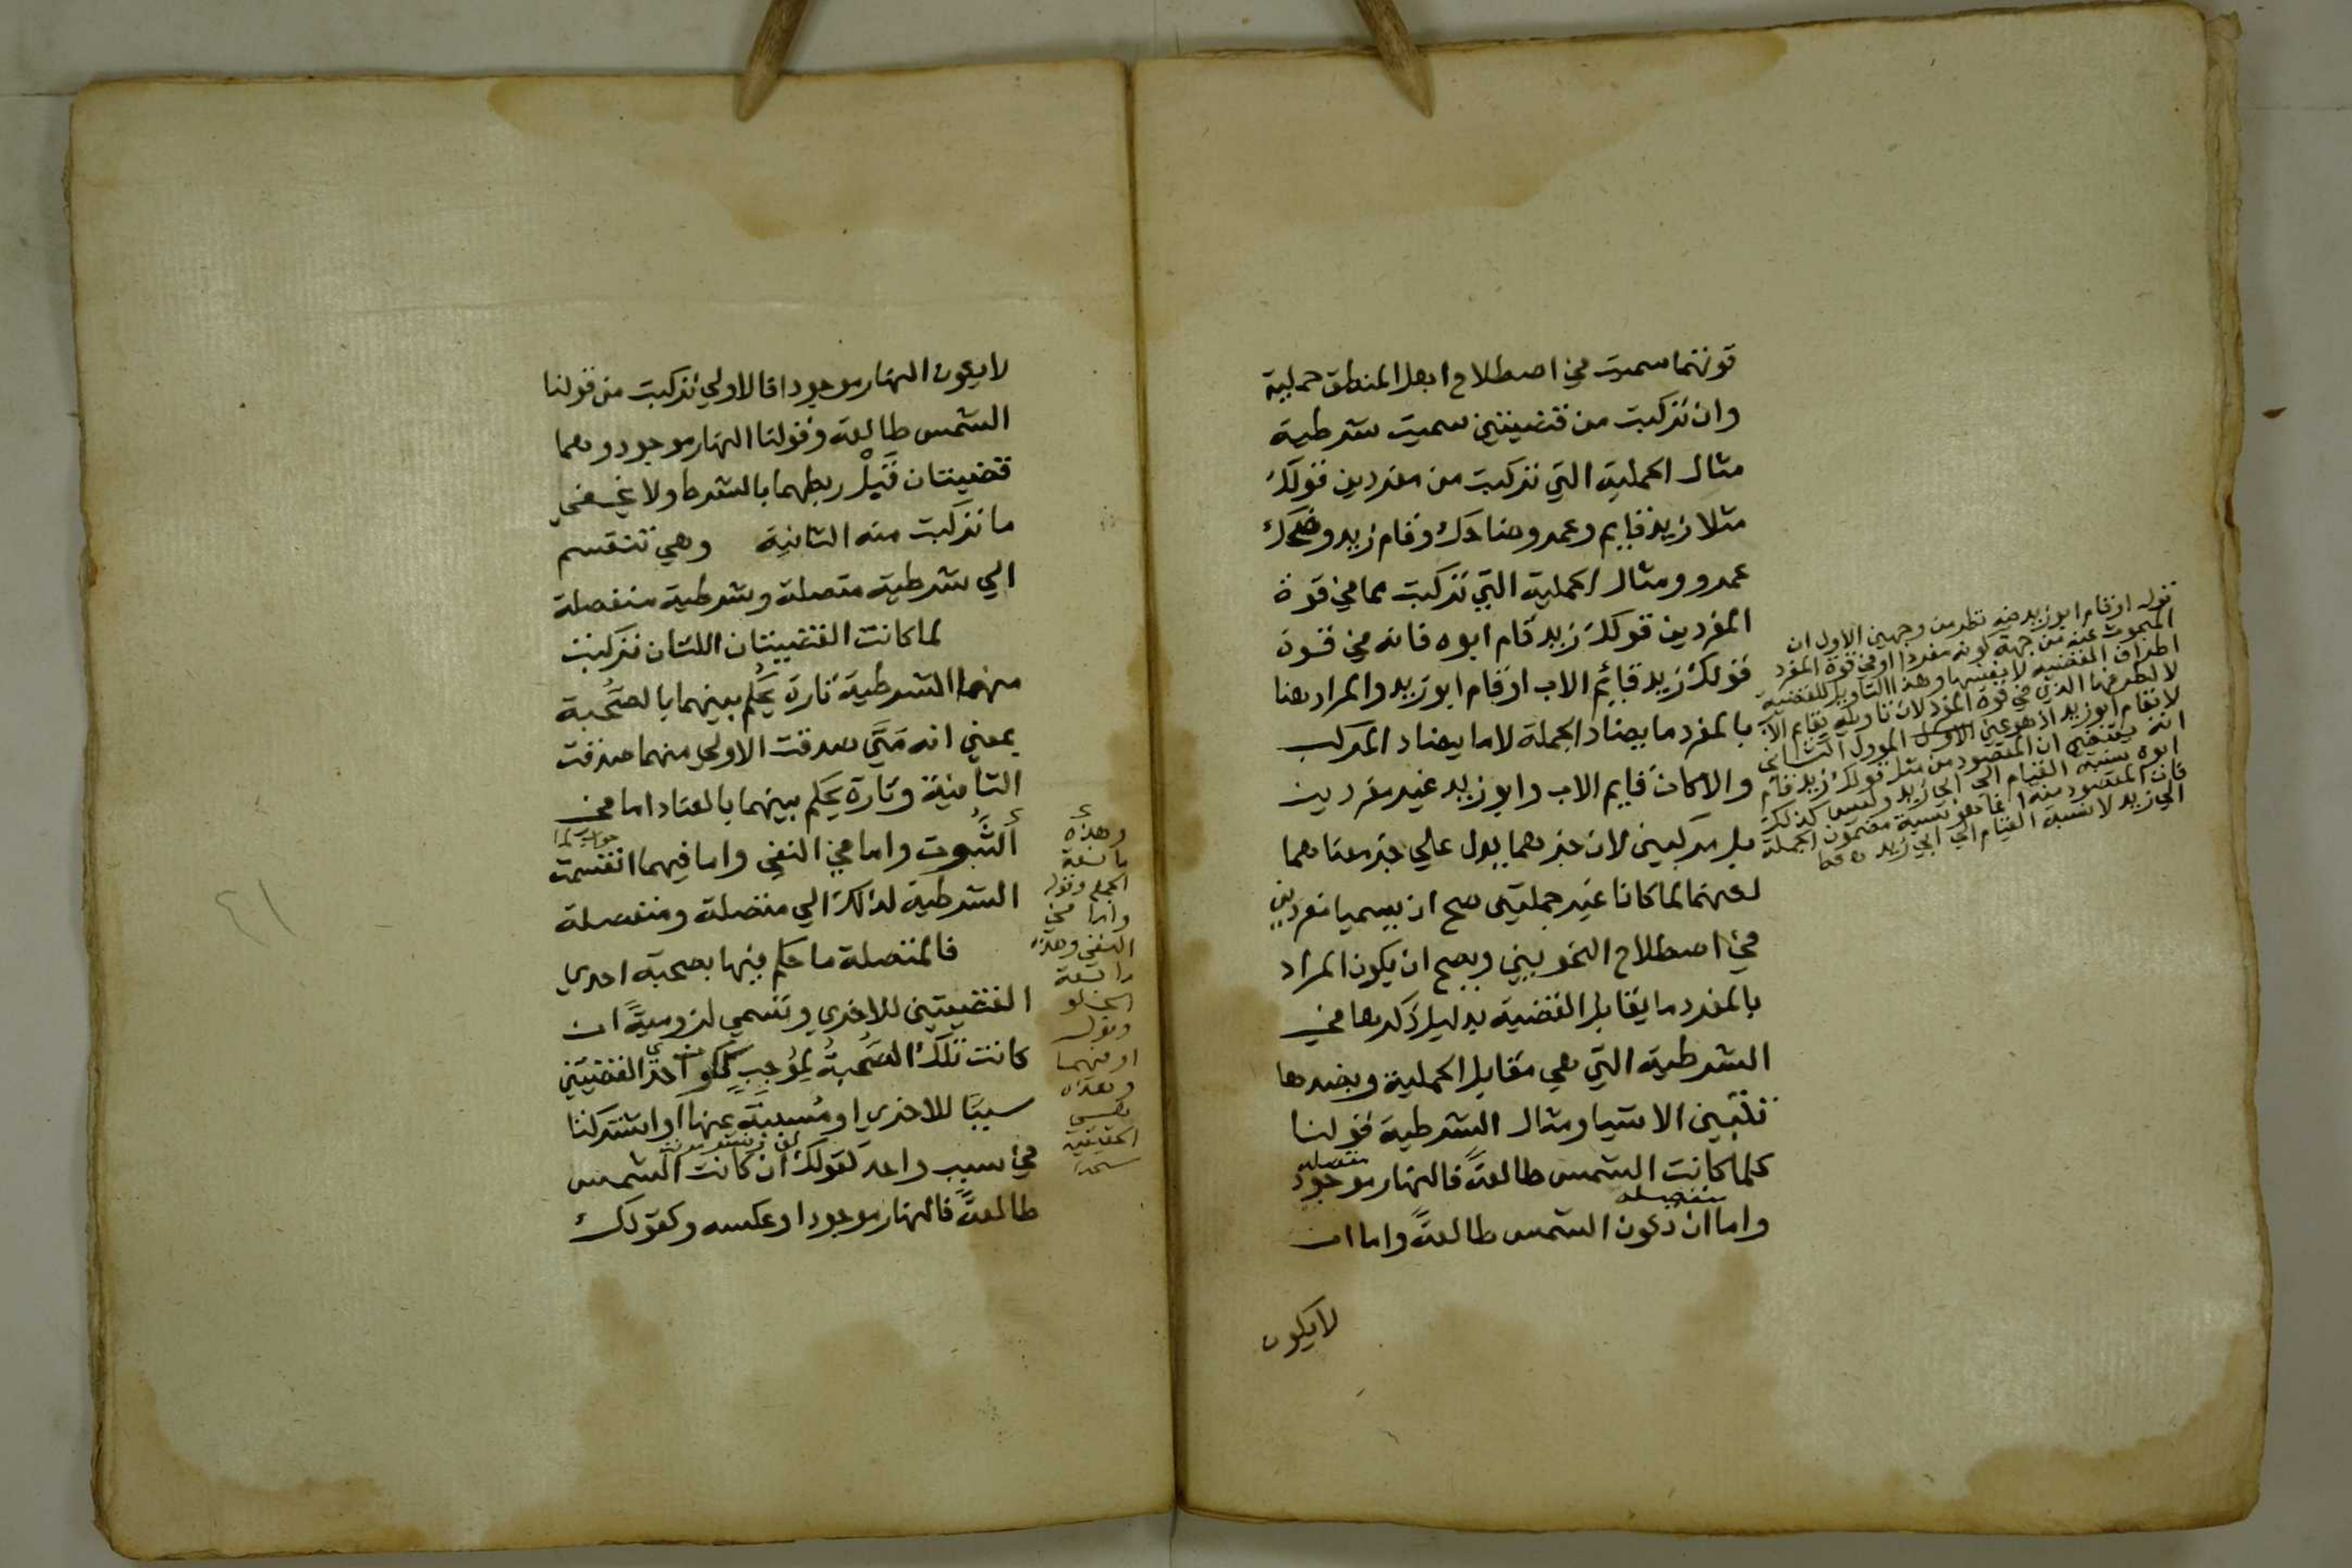 قوتهما سميت في اصطلاح اهل المنطق حملية
وان تركبت من قضيتين سميت شرطية
مثال الحملية التي تركبت من مفردين قولك
مثلا زيد قايم وعمرو ضاحك وقام زيد وضحك
عمرو ومثال الحملية التي تركبت مما في قوة
المفردين قولك زيد قام ابوه فانه في قوة
قولك زيد قائم الاب او قام ابو زيد والمراد هنا
بالمفرد ما يضاد الجملة لا ما يضاد المركب
والا كان قايم الاب وابو زيد غير مفردين
بل مركبين لان جزءهما يدل علي جزء معناهما
لكنهما لما كانا غير جملتين صح ان يسميا مفردين
في اصطلاح النحويين ويصح ان يكون المراد
بالمفرد ما يقابل القضية بدليل ذكرها في
الشرطية التي هي مقابل الحملية وبضدها
تتبين الاشيا ومثال الشرطية قولنا
متصله
كلما كانت الشمس طالعة فالنهار موجود
منفصله
واما ان تكون الشمس طالعة واما ان
لا يكون
قوله او قام ابو زيد فيه نظر من وجهين الاول ان
المبحوث عنه من جهة كونه مفردا او في قوة المفرد
اطراف القضيه لا نفسها وهذا التاويل للقضية
لا لطرفها الذي في قوة المفرد لان تاويله بقايم الاب
لا بقام ابو زيد اذ هو عين الاول المؤول الثاني
انه يقتضي ان المقصود من مثل قولك زيد قام
ابوه نسبة القيام الي ابي زيد وليس كذلك
فان المقصود منه انما هو نسبة مضمون الجملة
الي زيد لا نسبة القيام الي ابي زيد فقط
لا يكون النهار موجودا فالاولي تركبت من قولنا
الشمس طالعة وقولنا النهار موجود وهما
قضيتان قبل ربطهما بالشرط ولا يخفي
ما تركبت منه الثانية وهي تنقسم
الي شرطية متصلة وشرطية منفصلة
لما كانت القضيتان اللتان تركبت
منهما الشرطية تارة يحكم بينهما بالصحبة
بمعني انه متي صدقت الاولي منهما صدقت
الثانية وتارة يحكم بينهما بالعناد اما في
جواب لما
الثبوت واما في النفي واما فيهما انقسمت
الشرطية لذلك الي متصلة ومنفصلة
فالمتصلة ما حكم فيها بصحبة احدي
القضيتين للاخري وتسمي لزومية ان
كانت تلك الصحبة لموجب ككون احدي القضيتين
سببا للاخري او مسببة عنها او اشتركتا
في سبب واحد كقولك ان كانت الشمس
طالعة فالنهار موجود او عكسه وكقولك
وهذه
مانعة
الجمع وقوله
واما في
النفي وهذه
مانعة
الخلو
وقوله
او فيهما
وهذه
هي
الحقيقية